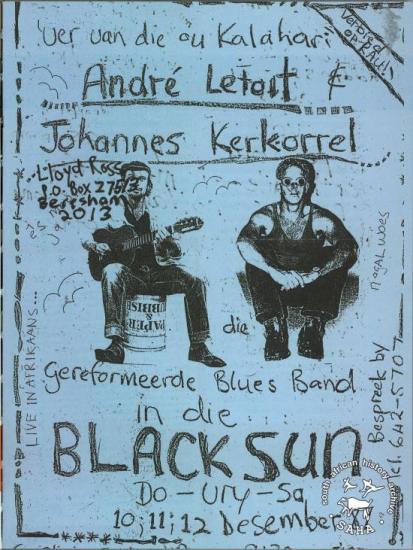 Ver van die ou Kalahari
Verbied
op RAU!
André Letoit &
Johannes Kerkorrel
Lloyd Ross
P.O. Box 275
Bergsham
2013
PAPER
& RUBBISH
die
nogal woes
LIVE IN AFRIKAANS...
Gereformeerde Blues Band
in die
BLACK SUN
Do-Vry-Sa
10, 11, 12 Desember
Bespreek by
tel. 642-5707
south african history archive
SAHA